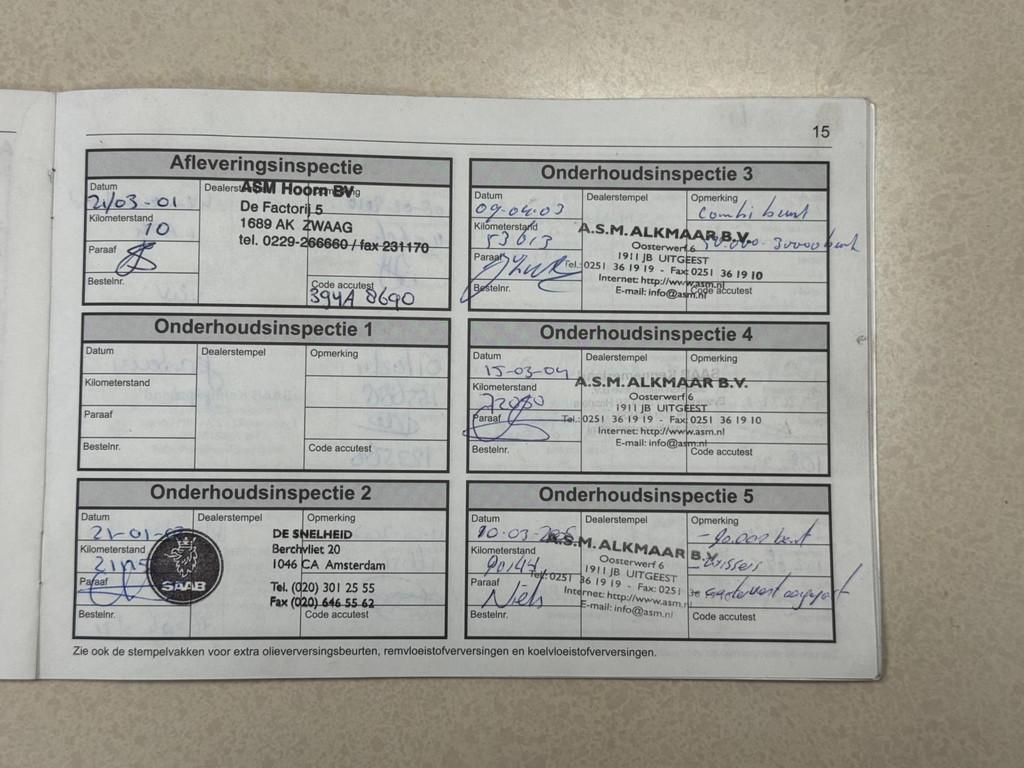 15
Afleveringsinspectie
Datum
21/03-01
Dealerstempel
ASM Hoorn BV
De Factorij 5
1689 AK ZWAAG
tel. 0229-266660 / fax 231170
Kilometerstand
10
Paraaf
Bestelnr.
Code accutest
394A 8690
Onderhoudsinspectie 1
Datum
Dealerstempel
Opmerking
Kilometerstand
Paraaf
Bestelnr.
Code accutest
Onderhoudsinspectie 2
Datum
21-01-
Dealerstempel
Opmerking
Kilometerstand
Paraaf
Bestelnr.
SAAB
DE SNELHEID
Berchvliet 20
1046 CA Amsterdam
Tel. (020) 301 25 55
Fax (020) 646 55 62
Code accutest
Onderhoudsinspectie 3
Datum
09-04-03
Dealerstempel
Opmerking
Combi beurt
Kilometerstand
53613
Paraaf
Bestelnr.
A.S.M. ALKMAAR B.V.
Oosterwerf 6
1911 JB UITGEEST
Tel.: 0251 36 19 19 - Fax: 0251 36 19 10
Internet: http://www.asm.nl
E-mail: info@asm.nl
Code accutest
Onderhoudsinspectie 4
Datum
15-03-04
Dealerstempel
Opmerking
Kilometerstand
Paraaf
Bestelnr.
A.S.M. ALKMAAR B.V.
Oosterwerf 6
1911 JB UITGEEST
Tel.: 0251 36 19 19 - Fax: 0251 36 19 10
Internet: http://www.asm.nl
E-mail: info@asm.nl
Code accutest
Onderhoudsinspectie 5
Datum
10-03-
Dealerstempel
Opmerking
-90.000 beurt
Kilometerstand
Paraaf
Niels
Bestelnr.
A.S.M. ALKMAAR B.V.
Oosterwerf 6
1911 JB UITGEEST
Tel.: 0251 36 19 19 - Fax: 0251
Internet: http://www.asm.nl
E-mail: info@asm.nl
Code accutest
Zie ook de stempelvakken voor extra olieverversingsbeurten, remvloeistofverversingen en koelvloeistofverversingen.